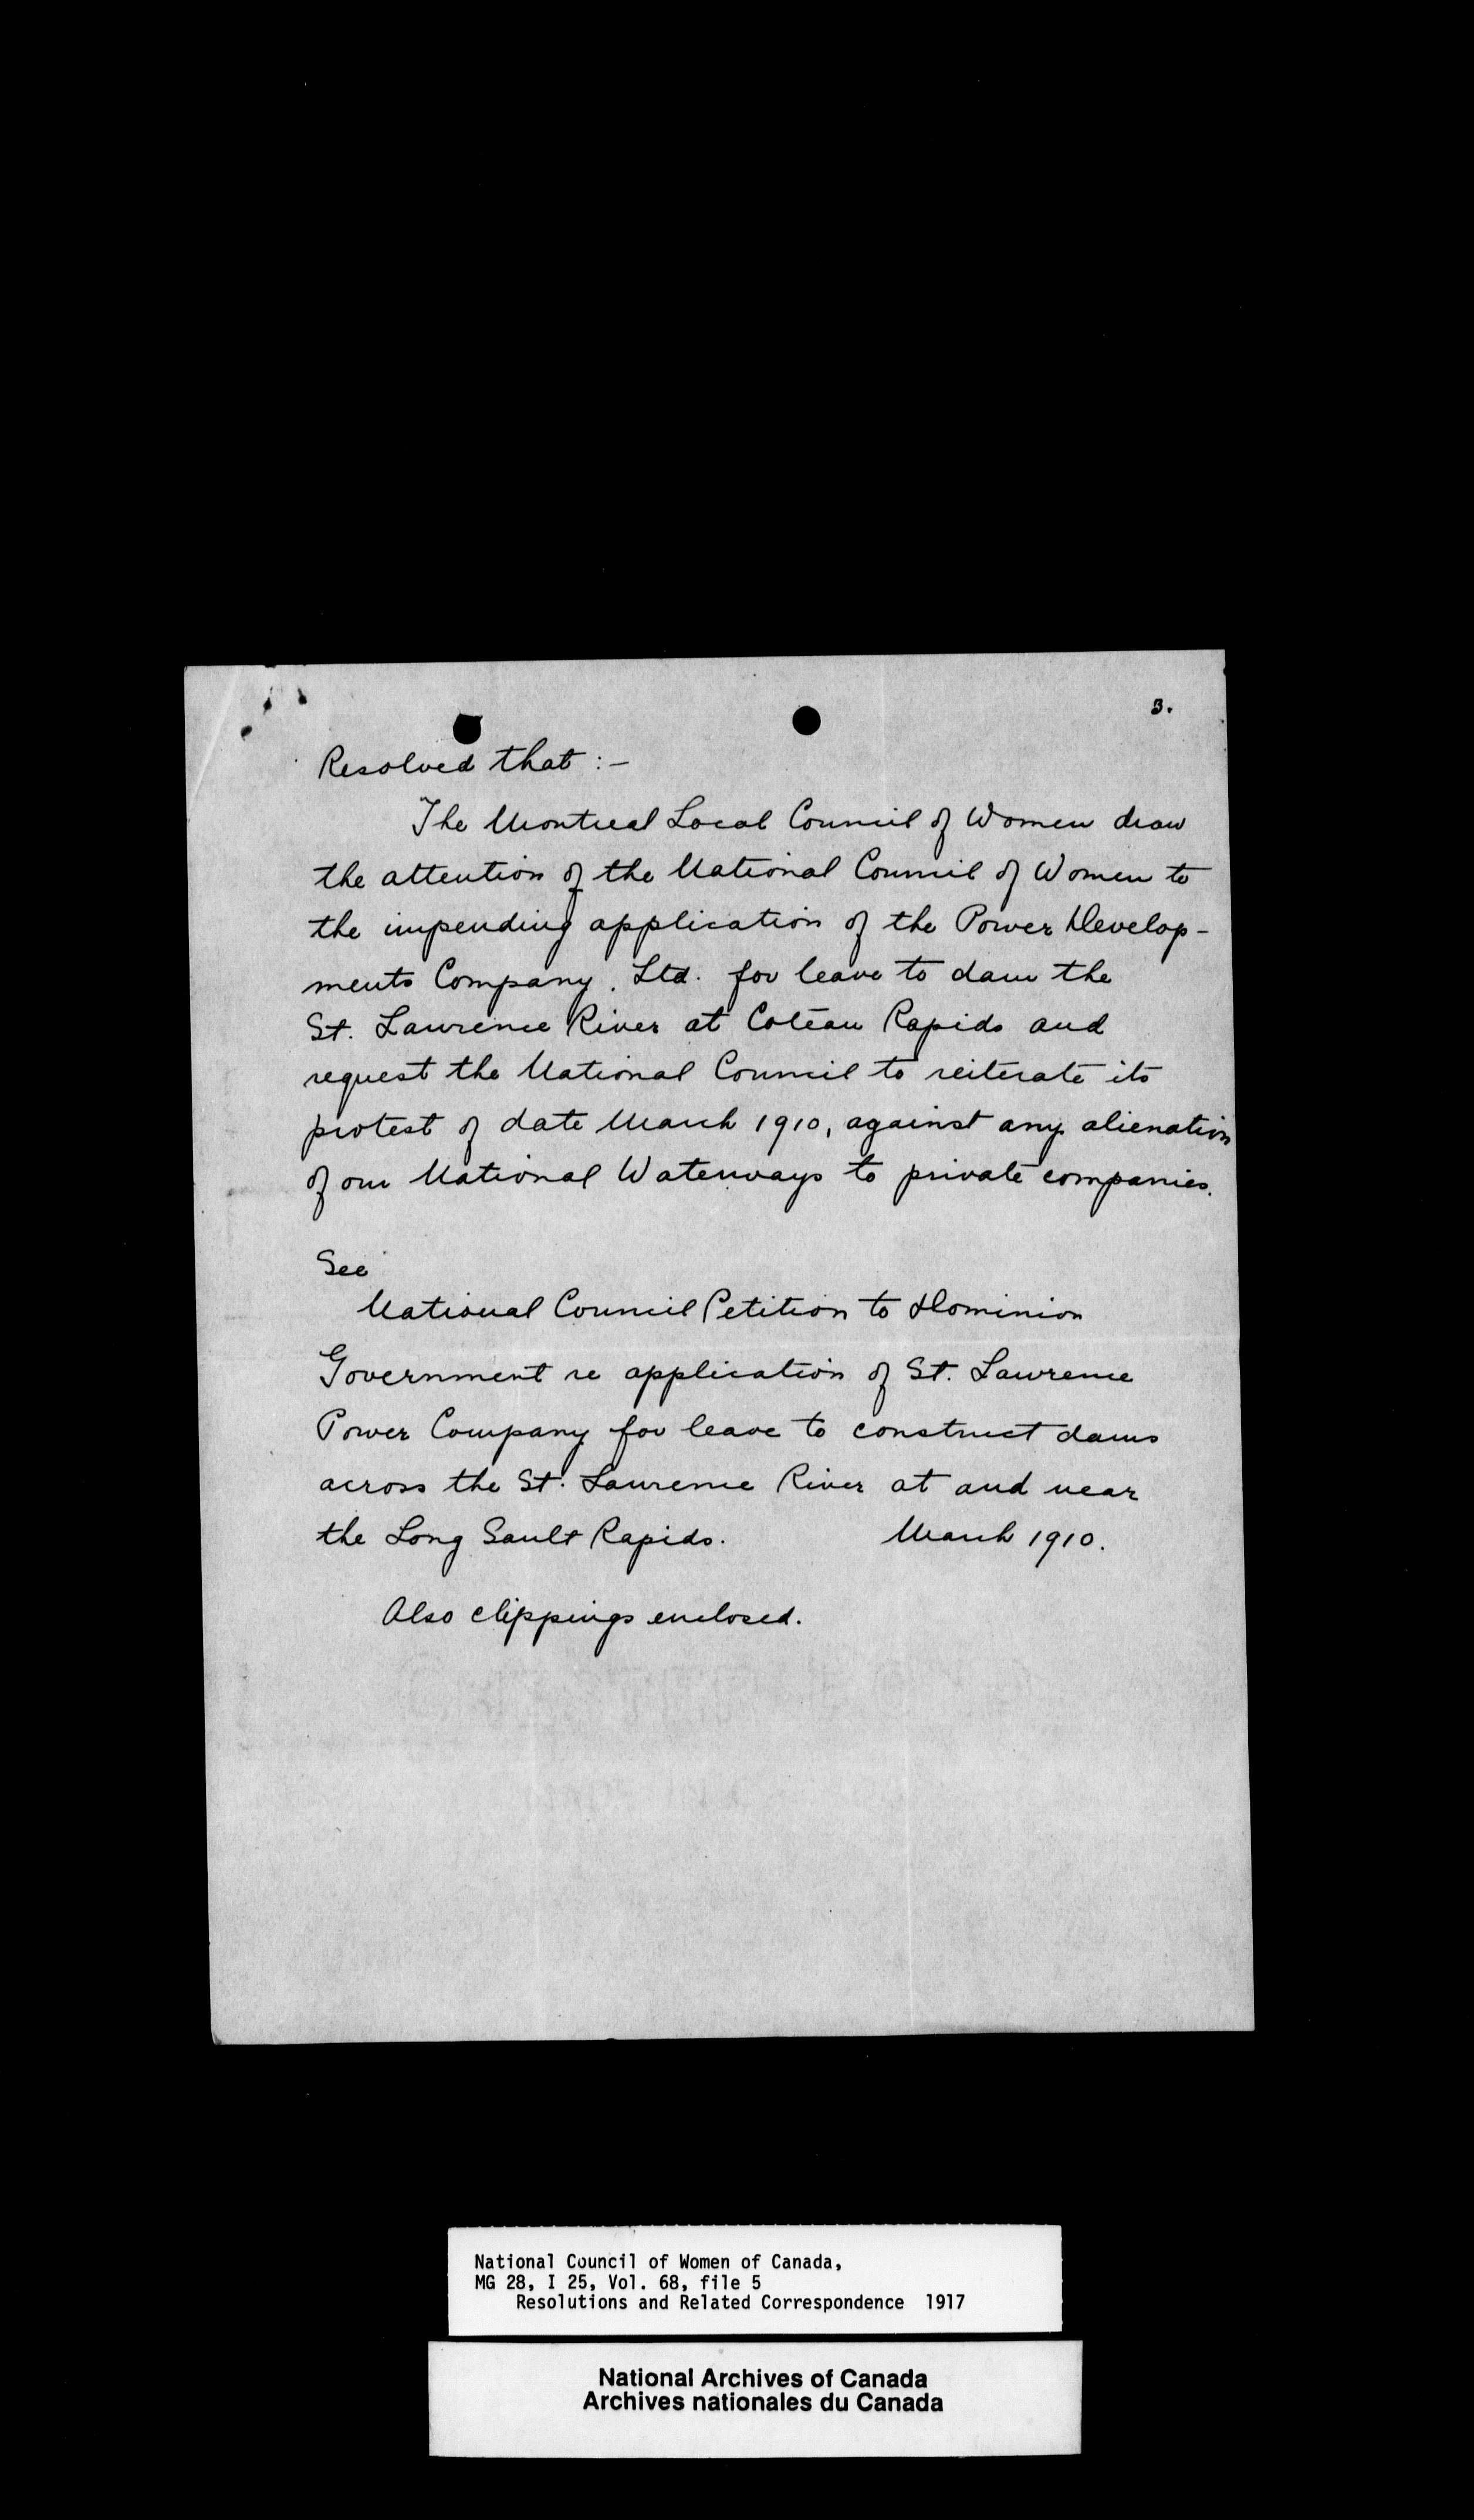 3.
Resolved that :-
The Montreal Local Council of Women draw
the attention of the National Council of Women to
the impending application of the Power Develop-
ments Company, Ltd. for leave to dam the
St. Lawrence River at Coteau Rapids and
request the National Council to reiterate its
protest of date March 1910, against any alienation
of our National Waterways to private companies.
See
National Council Petition to Dominion
Government re application of St. Lawrence
Power Company for leave to construct dams
across the St. Lawrence River at and near
the Long Sault Rapids. March 1910.
Also clippings enclosed.
National Council of Women of Canada,
MG 28, I 25, Vol. 68, file 5
Resolutions and Related Correspondence 1917
National Archives of Canada
Archives nationales du Canada